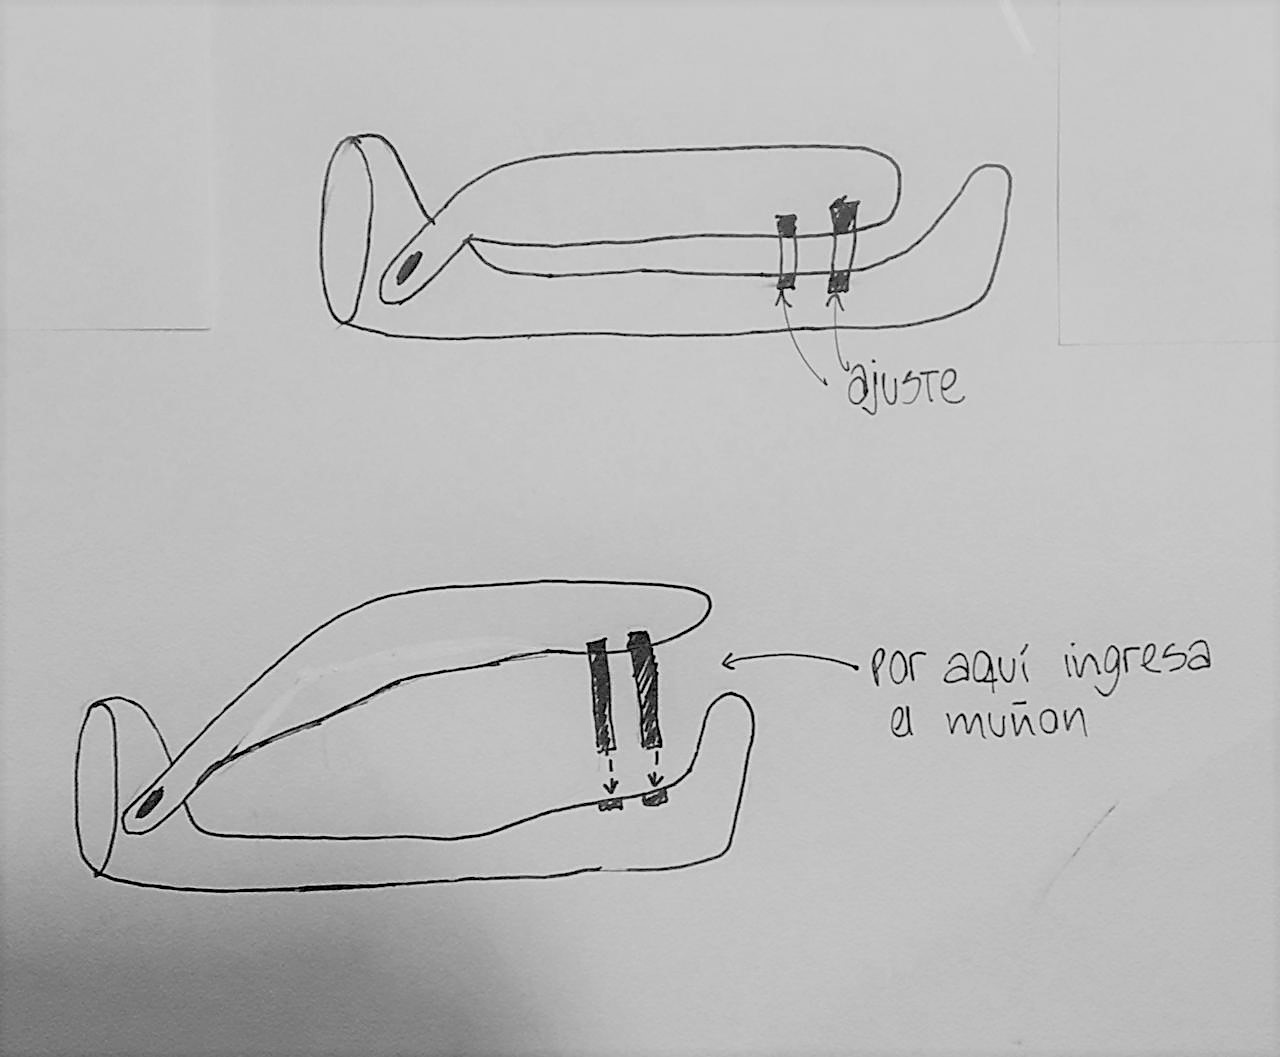 ajuste
por aquí ingresa
el muñon